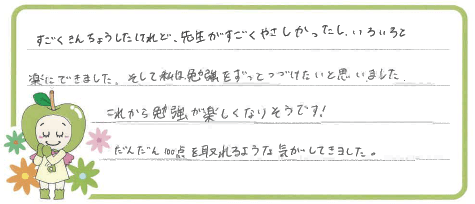 すごくきんちょうしたけれど、先生がすごくやさしかったし、いろいろと
楽にできました。そして私は勉強をずっとつづけたいと思いました
これから勉強が楽しくなりそうです!
だんだん100点を取れるような気がしてきました。